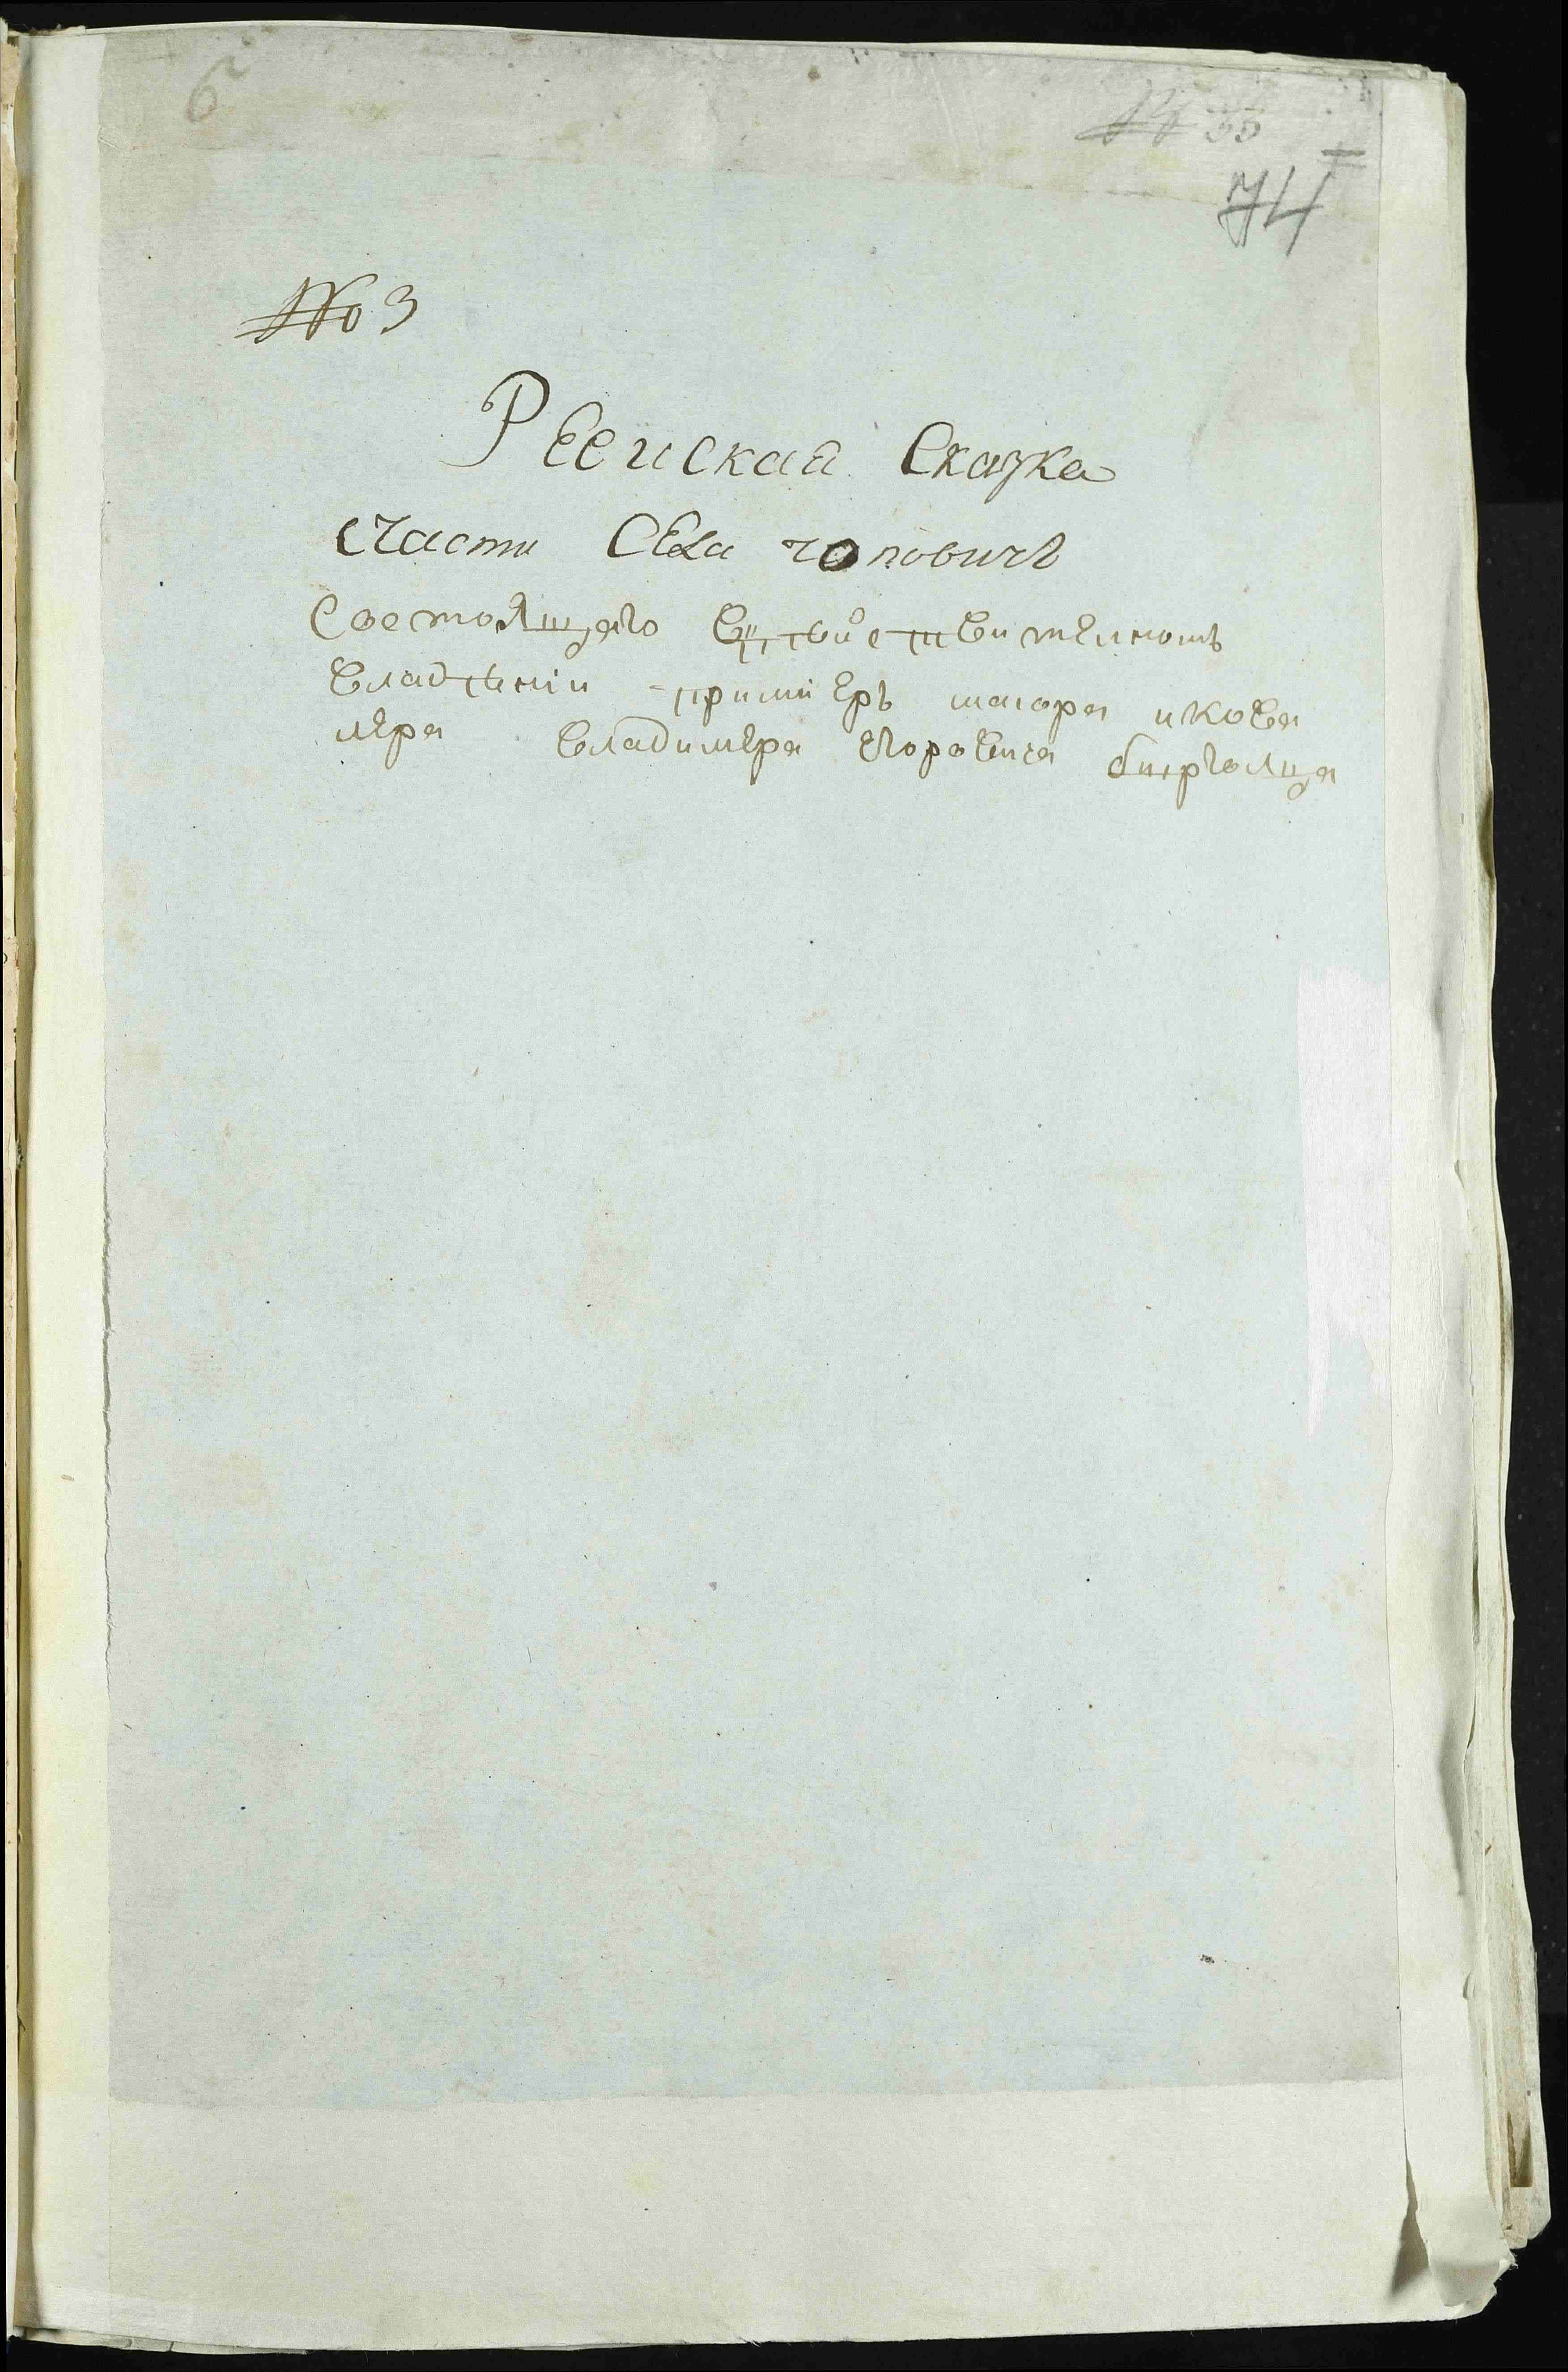 6
№ 35
74
№ 3
Ревиская Сказка
счасти Села чоповичъ
Состоящаго вдѣйствителномъ
владѣніи примиеръ маиора икова
лера Владимера Егоровича